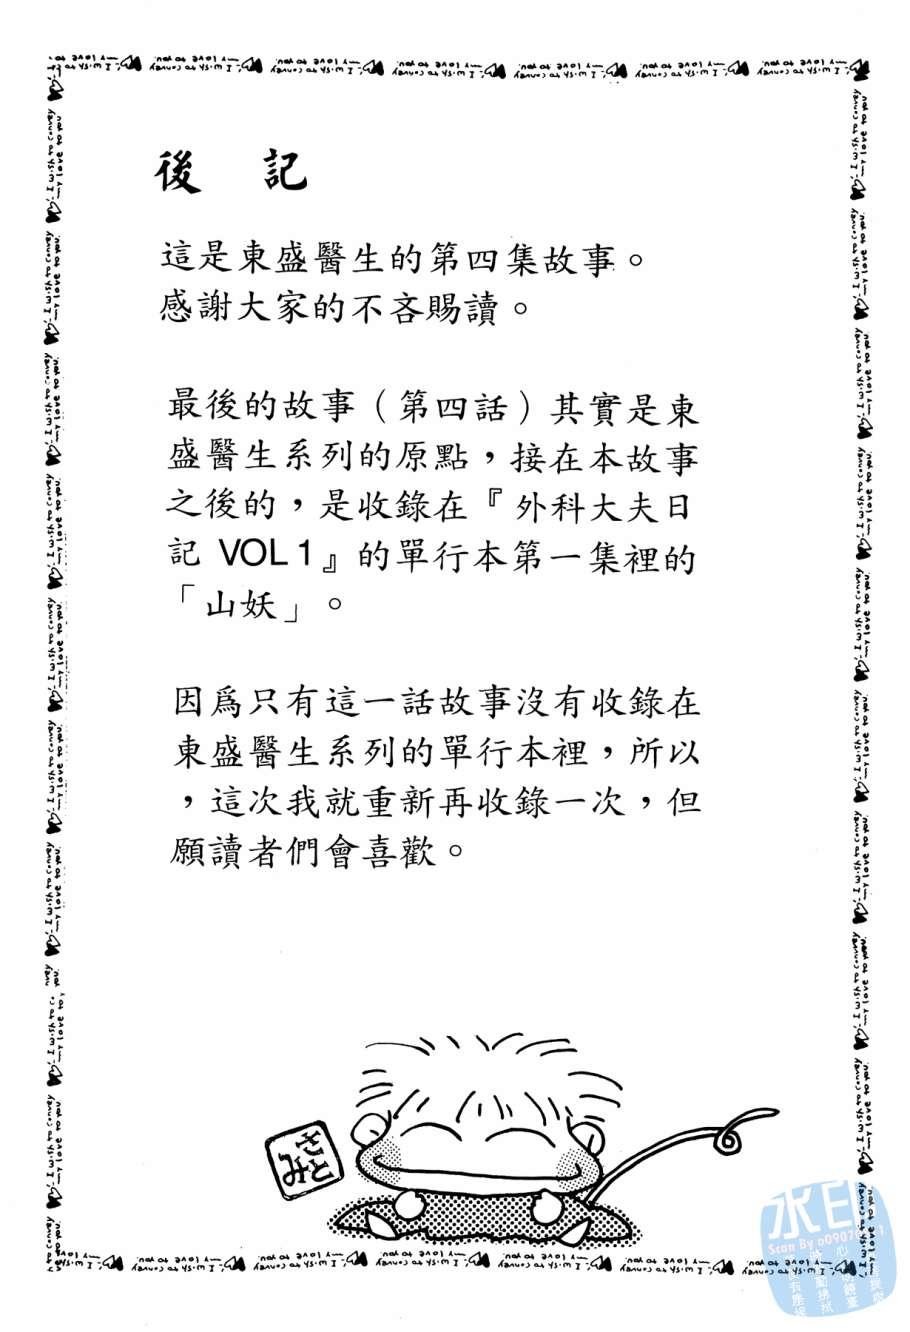 後 記
這是東盛醫生的第四集故事。
感謝大家的不吝賜讀。
最後的故事（第四話）其實是東
盛醫生系列的原點，接在本故事
之後的，是收錄在『外科大夫日
記 VOL1』的單行本第一集裡的
「山妖」。
因爲只有這一話故事沒有收錄在
東盛醫生系列的單行本裡，所以
，這次我就重新再收錄一次，但
願讀者們會喜歡。
さと
み
水印